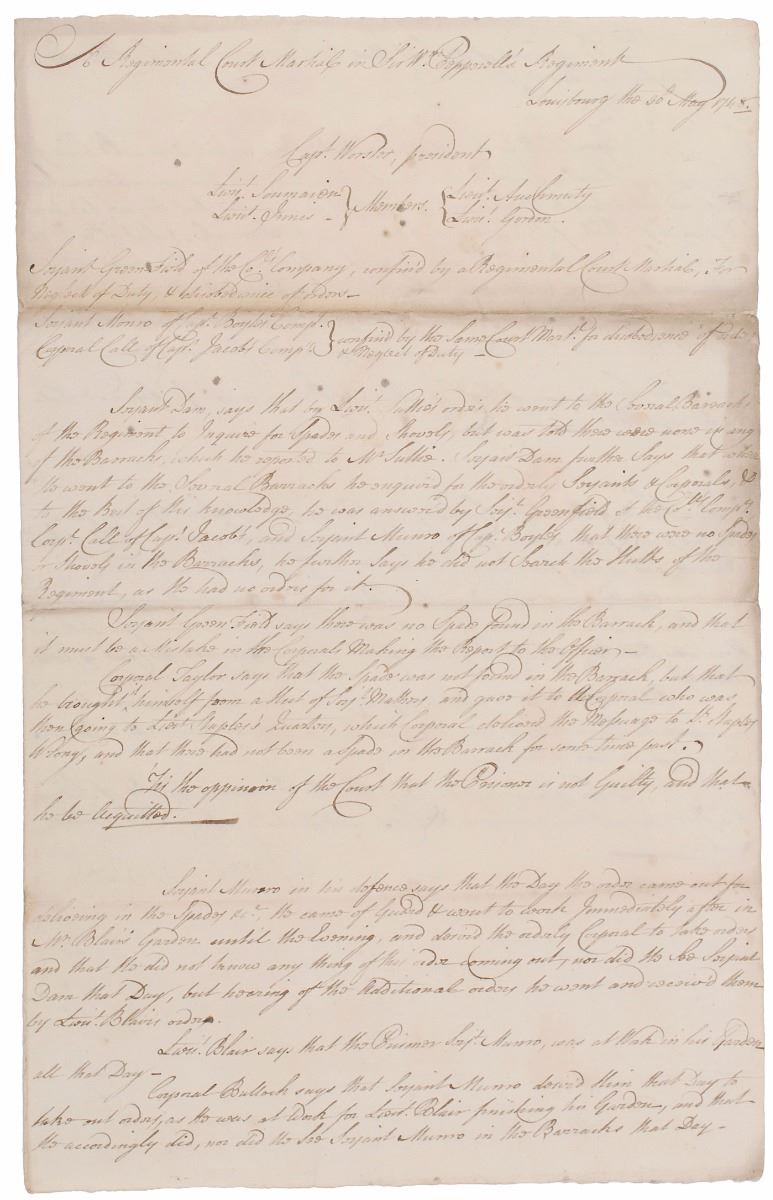 A Regimental Court Martial in Sir Wm. Pepperell's Regiment
Louisbourg the 20th May 1748.
Capt. Worster, president
Lieut. Soumaien Lieut. Auchmuty
Members.
Lieut. Jones - Lieut. Gordon.
Serjant Green Field of the Colls. Company, confin'd by a Regimental Court Martial, For
Neglect of Duty, & disobedience of orders -
Serjant Monro of Capt. Boyles Compy.
Corporal Call of Capt. Jacobs Compy. confin'd by the Same Court Mart. for disobedience of orders
& Neglect of Duty -
Serjant Dam, says that by Lieut. Suttie's orders he went to the Several Barracks
of the Regiment to Inquire for Spades and Shovels, but was told there were none in any
of the Barracks, which he reported to Mr. Suttie. Serjant Dam further Says that when
he went to the Several Barracks he enquired for the orderly Serjants & Corporals, &
to the Best of His knowledge, he was answered by Serjt. Greenfield of the Colls. Compy.
Corpl. Call of Capt. Jacobs, and Serjant Munro of Capt. Boyles, that there were no Spades
or Shovels in the Barracks, he further Says he did not Search the Hutts of the
Regiment, as He had no orders for it.
Serjant Green Field says there was no Spade found in the Barrack, and that
it must be a Mistake in the Corporals Making the Report to the Officer -
Corporal Taylor says that the Spade was not found in the Barrack, but that
he brought it himself from a Hut of Serjt. Mattors, and gave it to a Corporal who was
then going to Lieut. Naples's Quarters, which Corporal deliverd the Message to Lt. Naples
Wrong, and that there had not been a Spade in the Barrack for some time past.
Tis the oppinion of the Court that the Prisoner is not Guilty, and that
he be Acquitted.
Serjant Munro in his defence says that the Day the order came out for
delivering in the Spades &c. he came of Guard & went to work Immediately after in
Mr. Blair's Garden until the Evening, and desird the orderly Corporal to take orders
and that He did not know any thing of this order coming out, nor did He See Serjant
Dam that Day, but hearing of the Additional orders he went and receiv'd them
by Lieut. Blairs order.
Lieut. Blair says that the Prisoner Serjt. Munro, was at Work in his Garden
all that Day -
Corporal Bullock says that Serjant Munro desird Him that Day to
take out orders, as He was at Work for Lieut. Blair finishing his Garden, and that
He accordingly did, nor did He See Serjant Munro in the Barracks that Day -